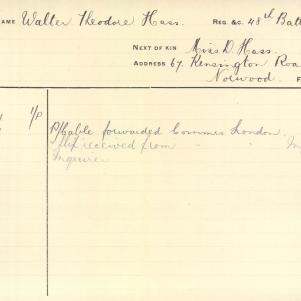 AME Walter Theodore Hass. REG. &C. 48th Batt
NEXT OF KIN Miss D. Hass.
ADDRESS 67. Kensington Roa
Norwood. F
1/P P/Cable forwarded Commis London.
received from " " In
Inquirer